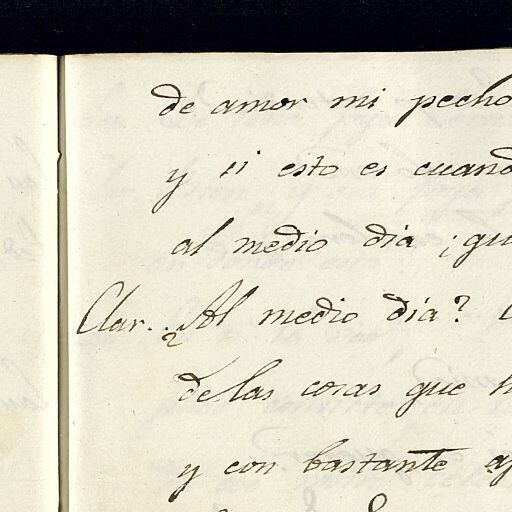 de amor mi pecho
y si esto es cuand
al medio dia ¡qu
Clar.. ¿Al medio dia?
de las cosas que h
y con bastante